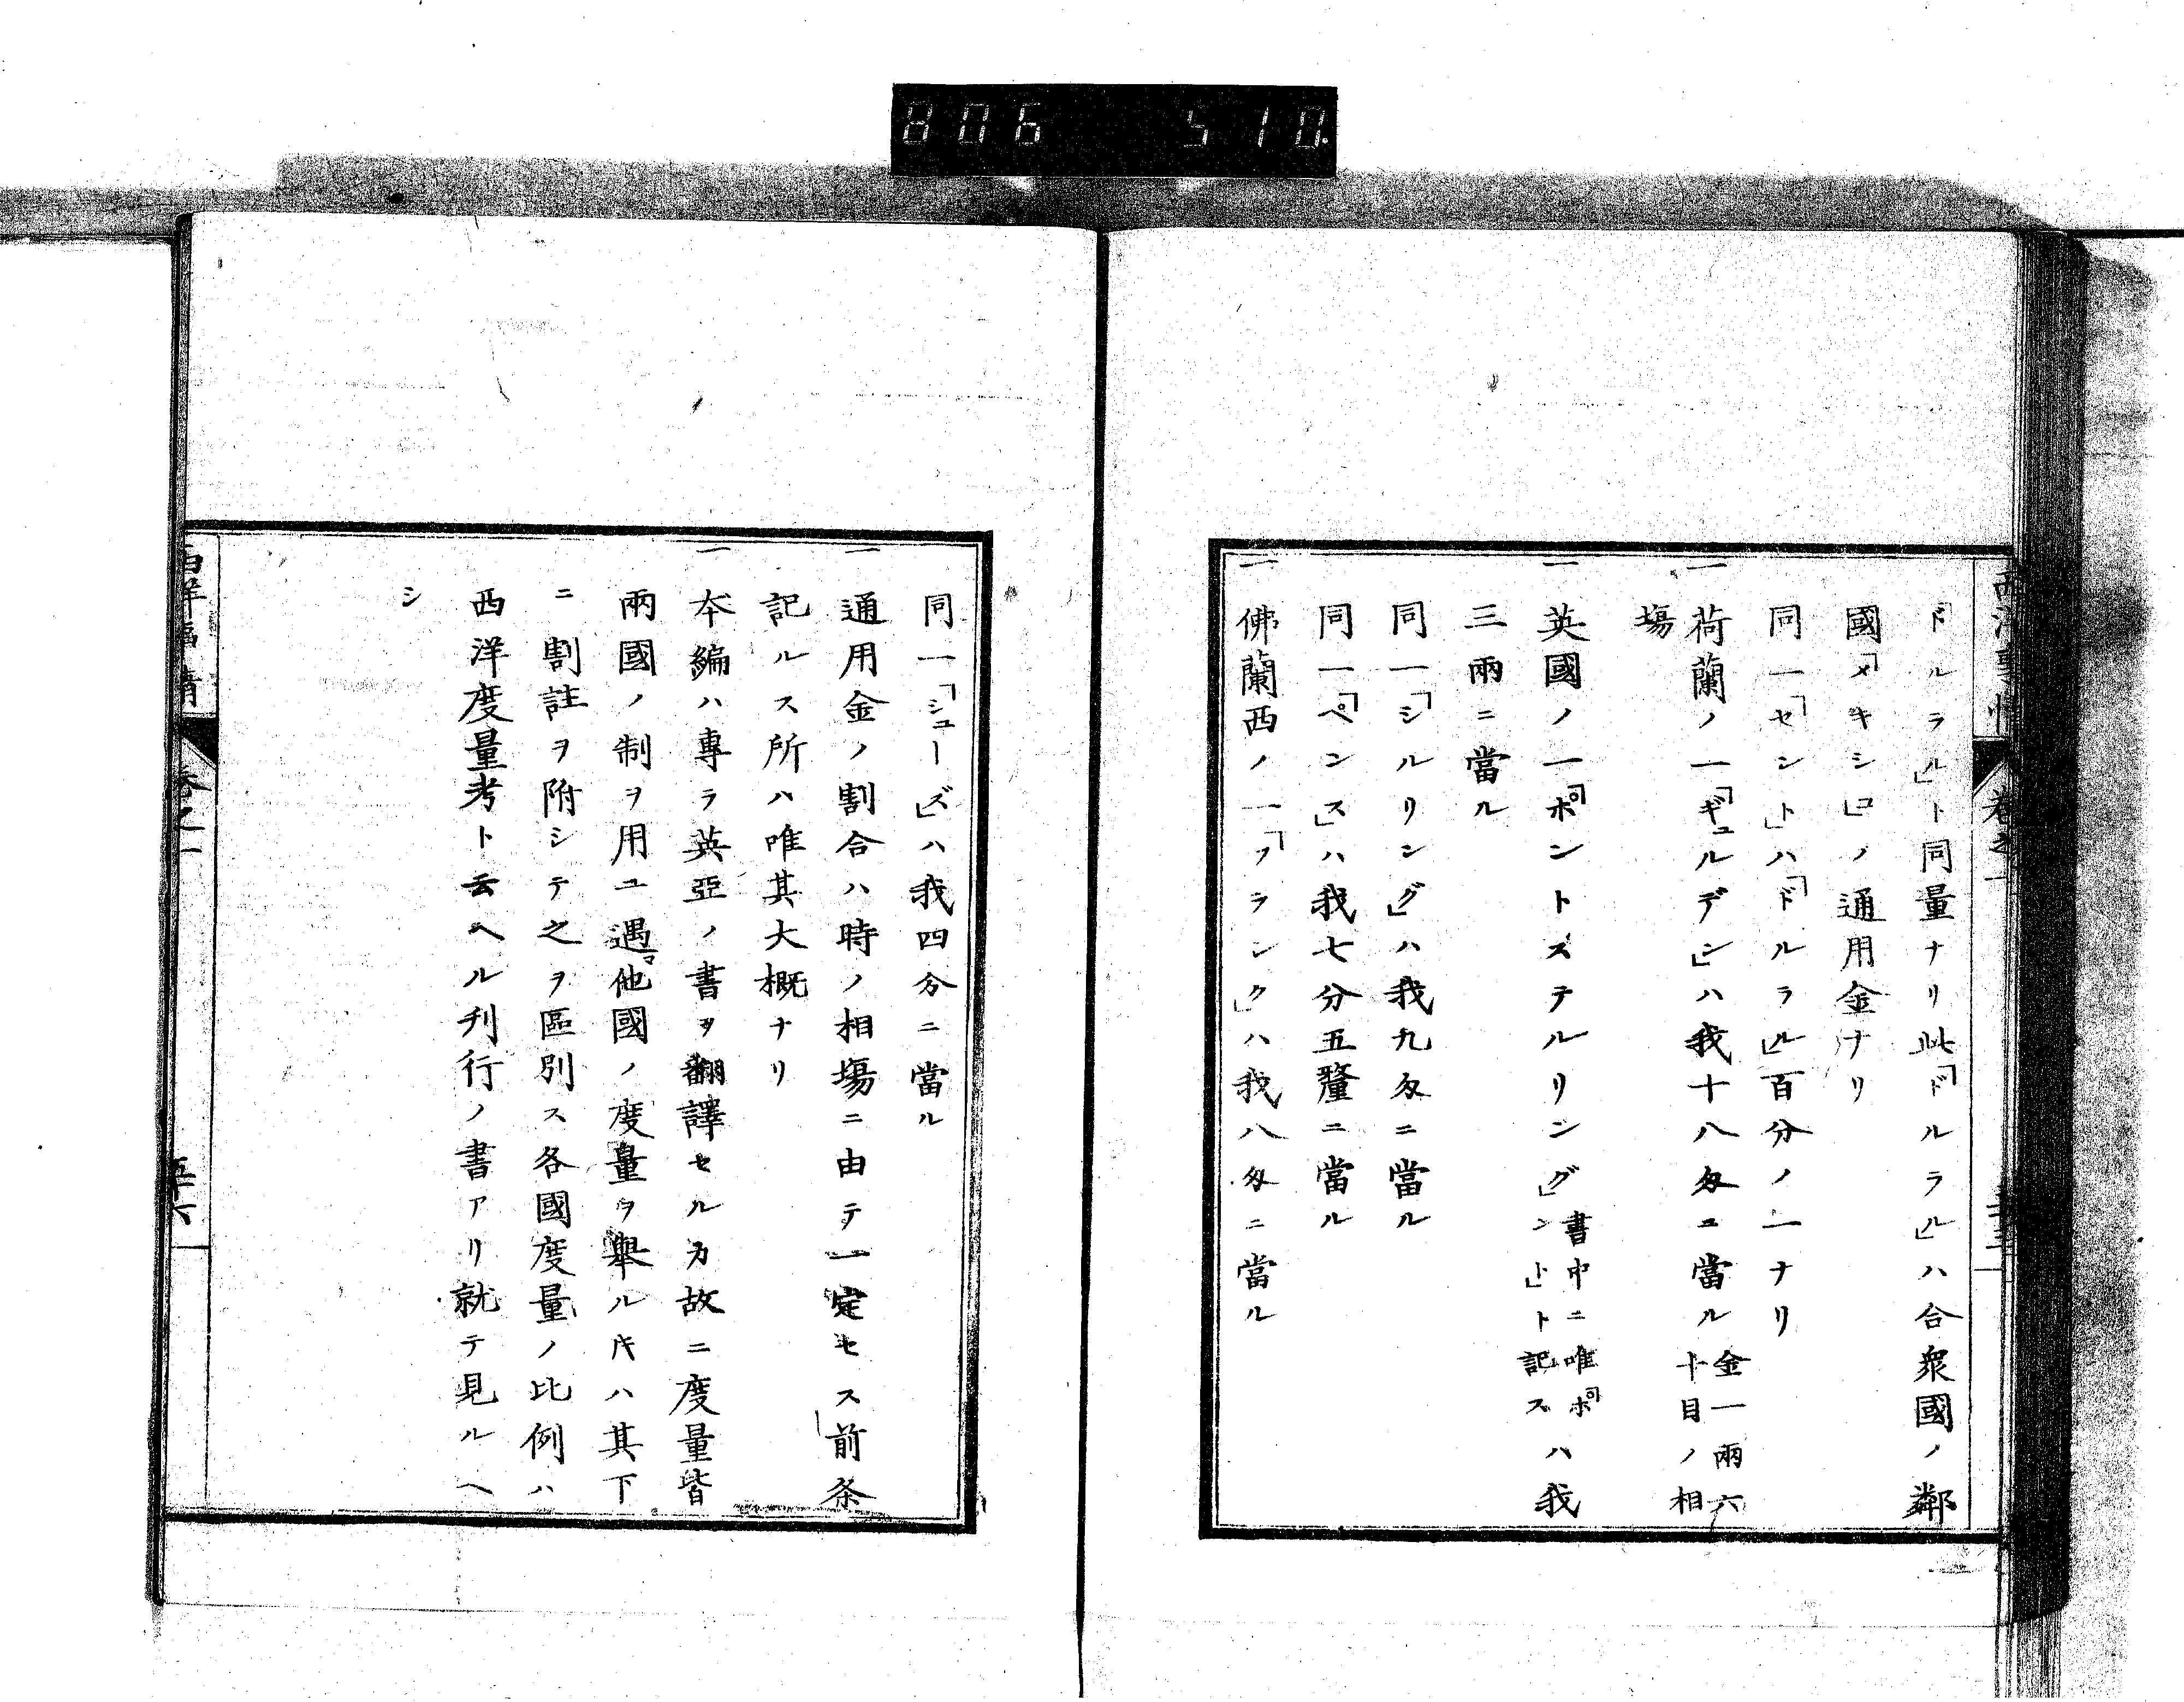 806 510.
西洋事情 卷之一
「ドルラル」ト同量ナリ此「ドルラル」ハ合衆國ノ鄰
國「メキシコ」ノ通用金ナリ
同一「セント」ハ「ドルラル」百分ノ一ナリ
一荷蘭ノ一「ギュルデン」ハ我十八匁ニ當ル金一兩六十目ノ相
塲
一英國ノ一「ポントステルリング」書中ニ唯「ポント」ト記スハ我
三兩ニ當ル
同一「シルリング」ハ我九匁ニ當ル
同一「ペンス」ハ我七分五釐ニ當ル
一佛蘭西ノ一「フランク」ハ我八匁ニ當ル
同一「シューズ」ハ我四分ニ當ル
一通用金ノ割合ハ時ノ相塲ニ由テ一定セス前条
記ルス所ハ唯其大概ナリ
一本編ハ專ラ英亞ノ書ヲ翻譯セルカ故ニ度量皆
兩國ノ制ヲ用ユ遇マ他國ノ度量ヲ舉ルキハ其下
ニ割註ヲ附シテ之ヲ區別ス各國度量ノ比例ハ
西洋度量考ト云ヘル刋行ノ書アリ就テ見ルヘ
シ
卷之一